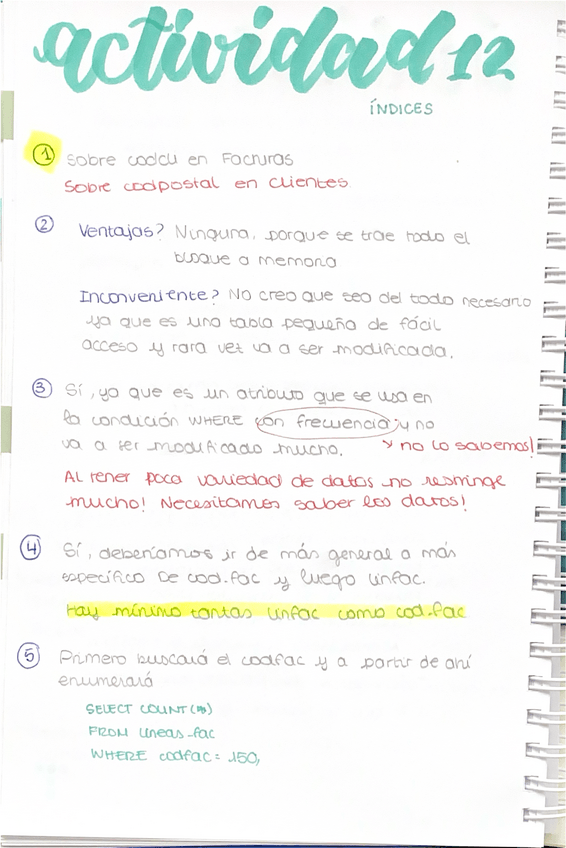 actividad 12
ÍNDICES
① Sobre codcli en Facturas
Sobre codpostal en clientes
② Ventajas? Ninguna, porque se trae todo el
bloque a memoria
Inconveniente? No creo que sea del todo necesario
ya que es una tabla pequeña de fácil
acceso y rara vez va a ser modificada.
③ Sí, ya que es un atributo que se usa en
la condición WHERE con frecuencia y no
va a ser modificado mucho. ↘ no lo sabemos!
Al tener poca variedad de datos no restringe
mucho! Necesitamos saber los datos!
④ Sí, deberíamos ir de más general a más
específico De cod.fac y luego linfac.
Hay mínimo tantas linfac como cod.fac
⑤ Primero buscará el codfac y a partir de ahí
enumerará
SELECT COUNT(*)
FROM lineas-fac
WHERE codfac = 150;